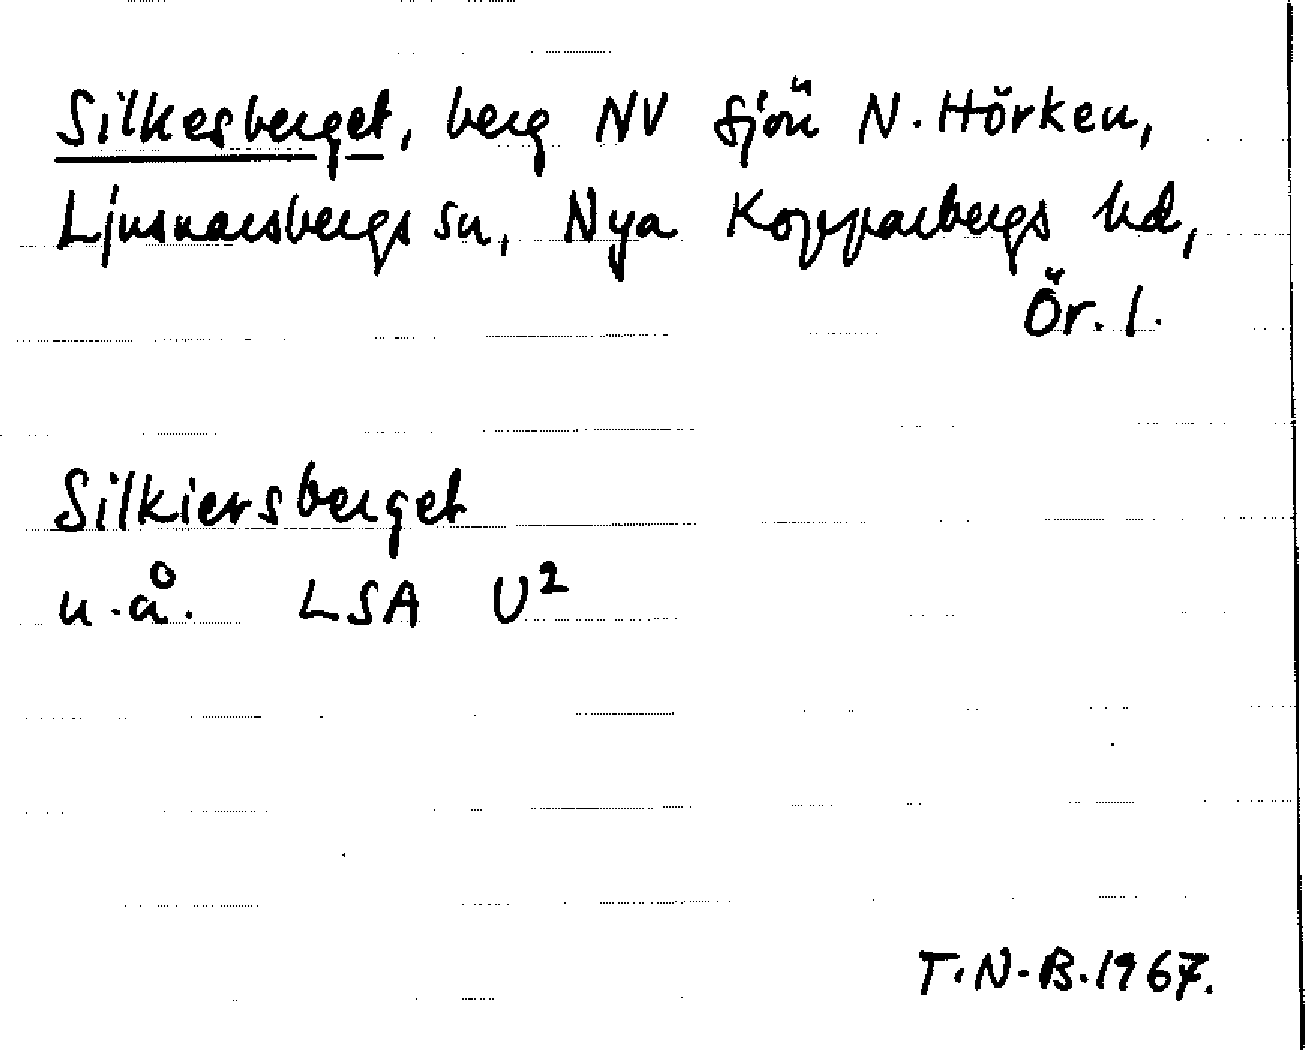 Silkesberget, berg NV sjön N. Hörken,
Ljusnarsbergs sn, Nya Kopparbergs hd,
Ör. l.
Silkiersberget
u.å. LSA U²
T.N-B.1967.